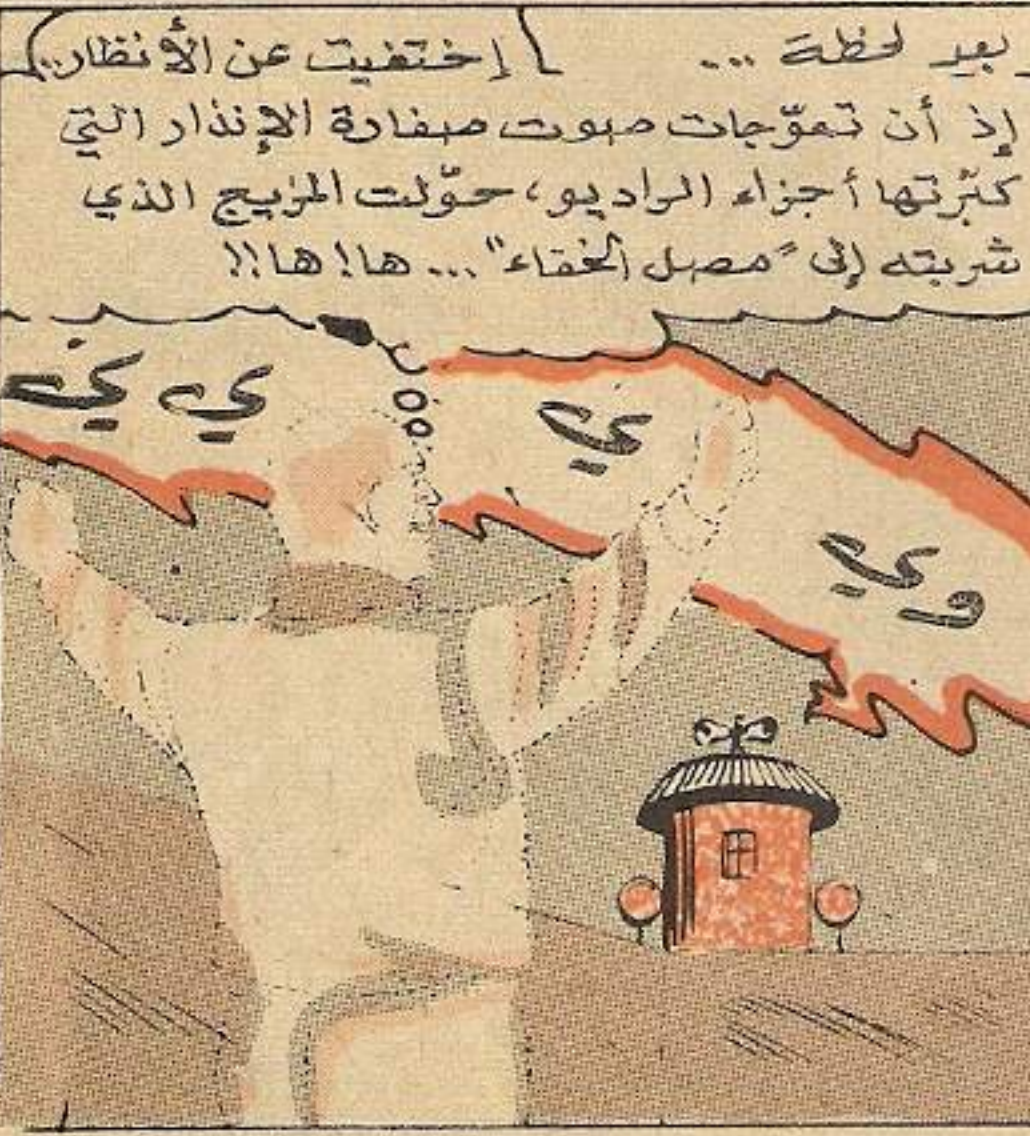 بعد لحظة ...
إختفيت عن الأنظار..
إذ أن تموّجات صوت صفارة الإنذار التي
كبّرتها أجزاء الراديو، حوّلت المزيج الذي
شربته إلى "مصل الخفاء"... ها! ها!!
وي ي ي ي